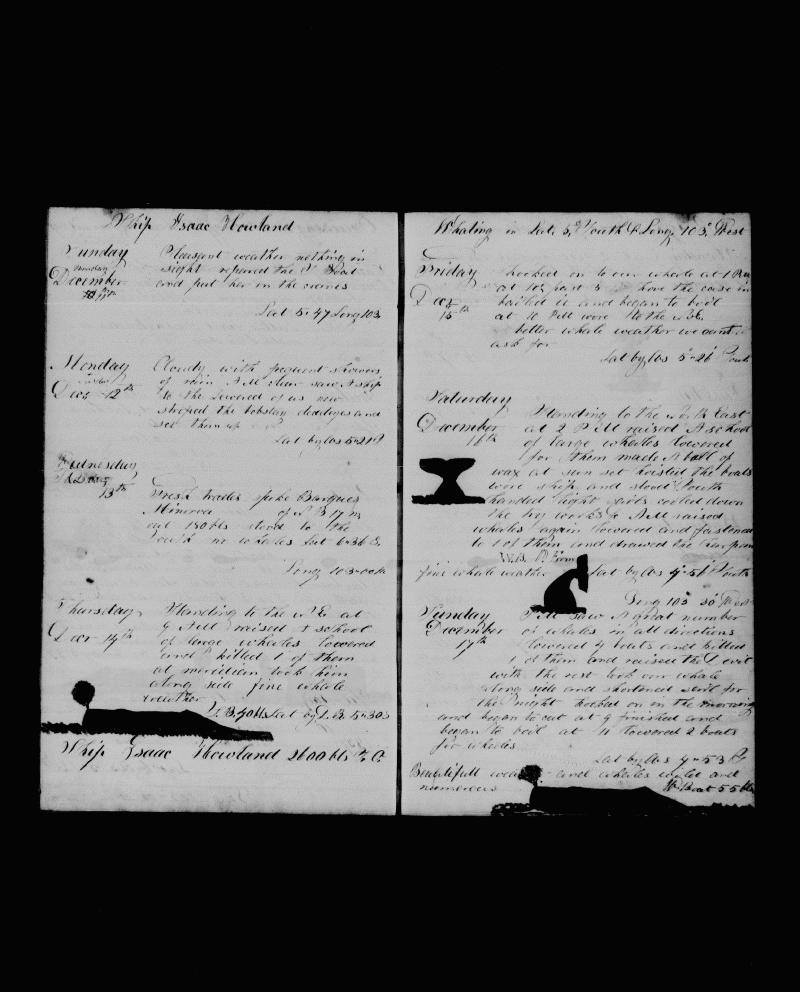 Ship Isaac Howland
Sunday Pleasant weather nothing in
Monday sight repaired the S Boat
December and put her in the cranes
11th
Lat 5-47 Long 103
Monday Cloudy with frequent showers
of rain A M saw A ship
Dec 12th to the leeward of us now
striped the bobstay and
set them up
Lat by obs 5-21
Wednesday
Dec
13th Fresh trades spoke Barques
Minerva of N B 17 m
out 150 bls stood to the
South no whales Lat 6-36 S.
Long 103-00
Thursday Standing to the N E at
Dec 14th 9 A M raised A school
of large whales lowered
and killed 1 of them
at meridian took him
along side fine whale
weather
L. B. 40 bls Lat by D. R. 5-30 S
Ship Isaac Howland 2600 bls
Whaling in Lat. 5° South & Long. 103° West
Friday hooked on to our whale at 1 P M
at 10 past 3 hove the case in
Dec bailed it and began to boil
15th at 10 P M wore to the N E.
better whale weather we cant
ask for
Lat by obs 5-26 South
Saturday
Standing to the N East
December at 2 P M raised A school
16th of large whales lowered
for them made A ball of
wax at sun set hoisted the boats
wore ship and stood South
handed light sails cooled down
the try works A M raised
whales again lowered and fastened
to 1 of them and drawed the harpoon
W. B. Iron
fine whale weather Lat by obs 4-51 South
Long 103 30 West
Sunday P M saw A great number
December of whales in all directions
17th lowered 4 boats and killed
1 of them and raised the Devil
with the rest took our whale
along side and shortened sail for
the night hooked on in the morning
and began to cut at 9 finished and
began to boil at 11 lowered 2 boats
for whales
Lat by obs 4-53
Beautifull and whales wild and
numerous W Boat 55 bls